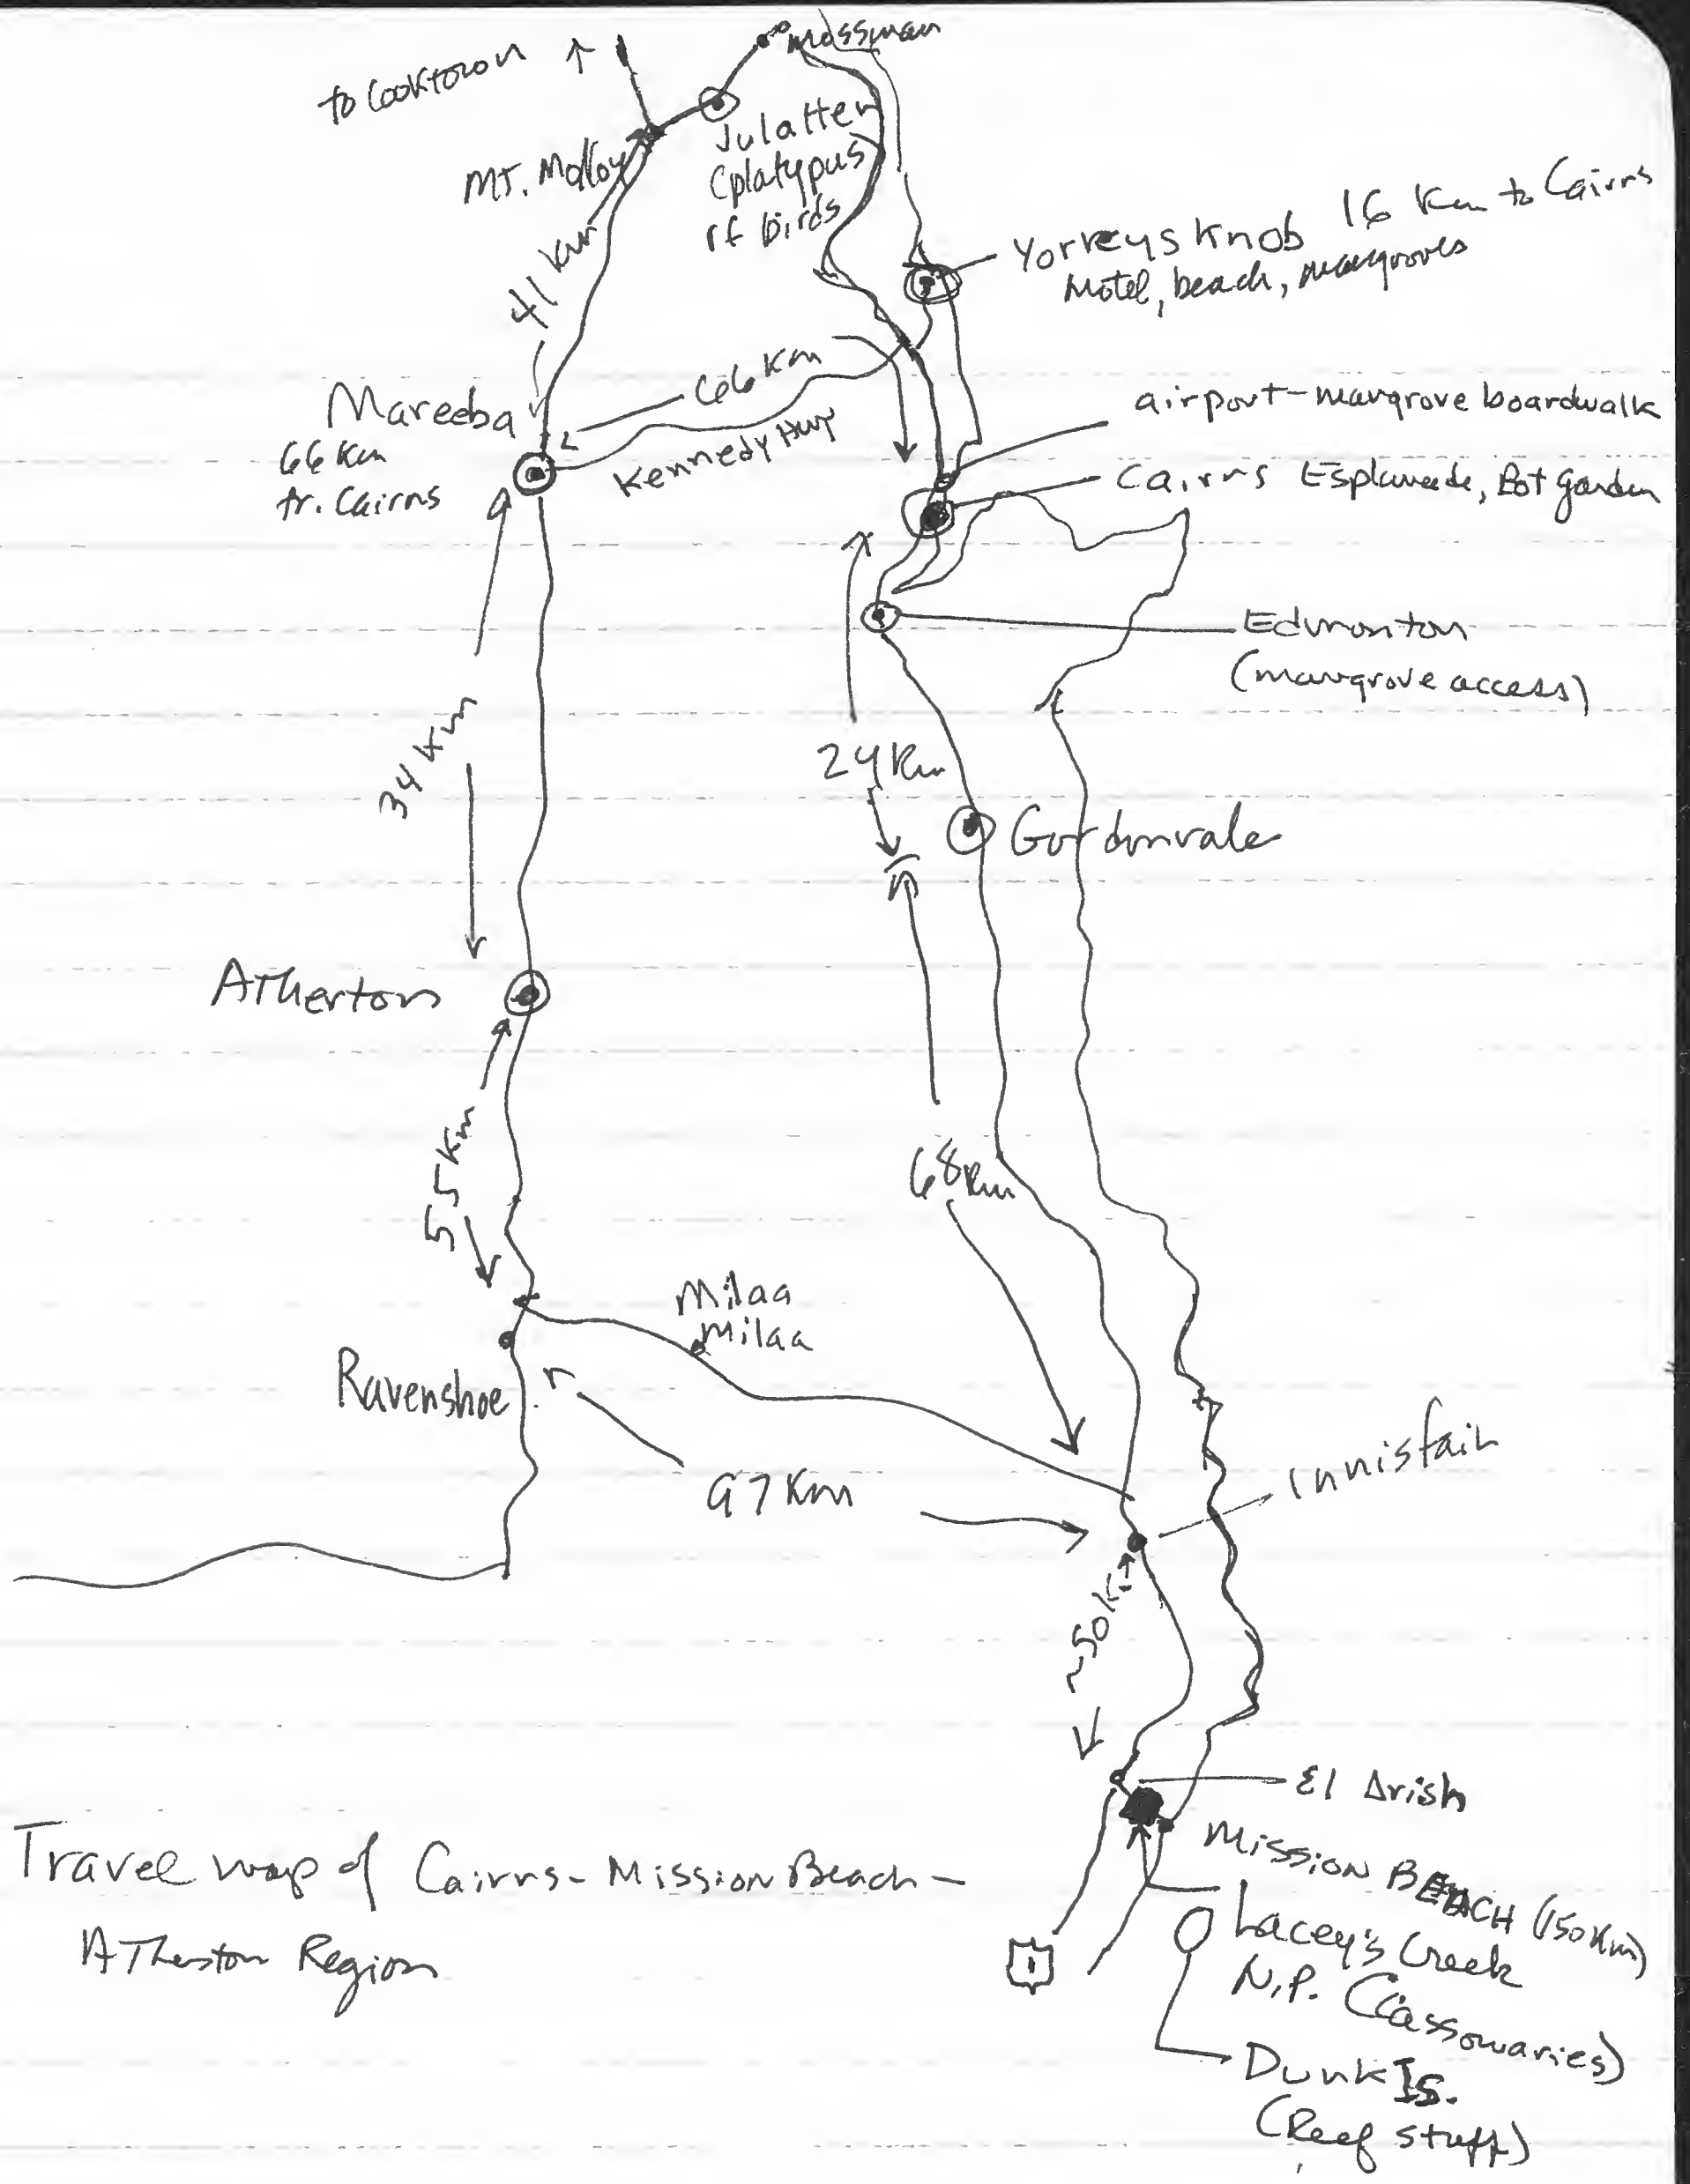 to Cooktown
Mossman
MT. Molloy
Julatten
(platypus
rf birds
41 km
Yorkeys Knob 16 Km to Cairns
Motel, beach, mangroves
66 Km
Kennedy Hwy
Mareeba
66 Km
fr. Cairns
airport-mangrove boardwalk
Cairns Esplanade, Bot garden
Edmonton
(mangrove access)
34 Km
24 Km
Gordonvale
Atherton
55 Km
68 Km
Milaa
Milaa
Ravenshoe
97 Km
Innisfail
~50 K
El Arish
MISSION BEACH (150 Km)
Lacey's Creek
N.P. (Cassowaries)
1
Dunk Is.
(Reef stuff)
Travel map of Cairns-Mission Beach-
Atherton Region